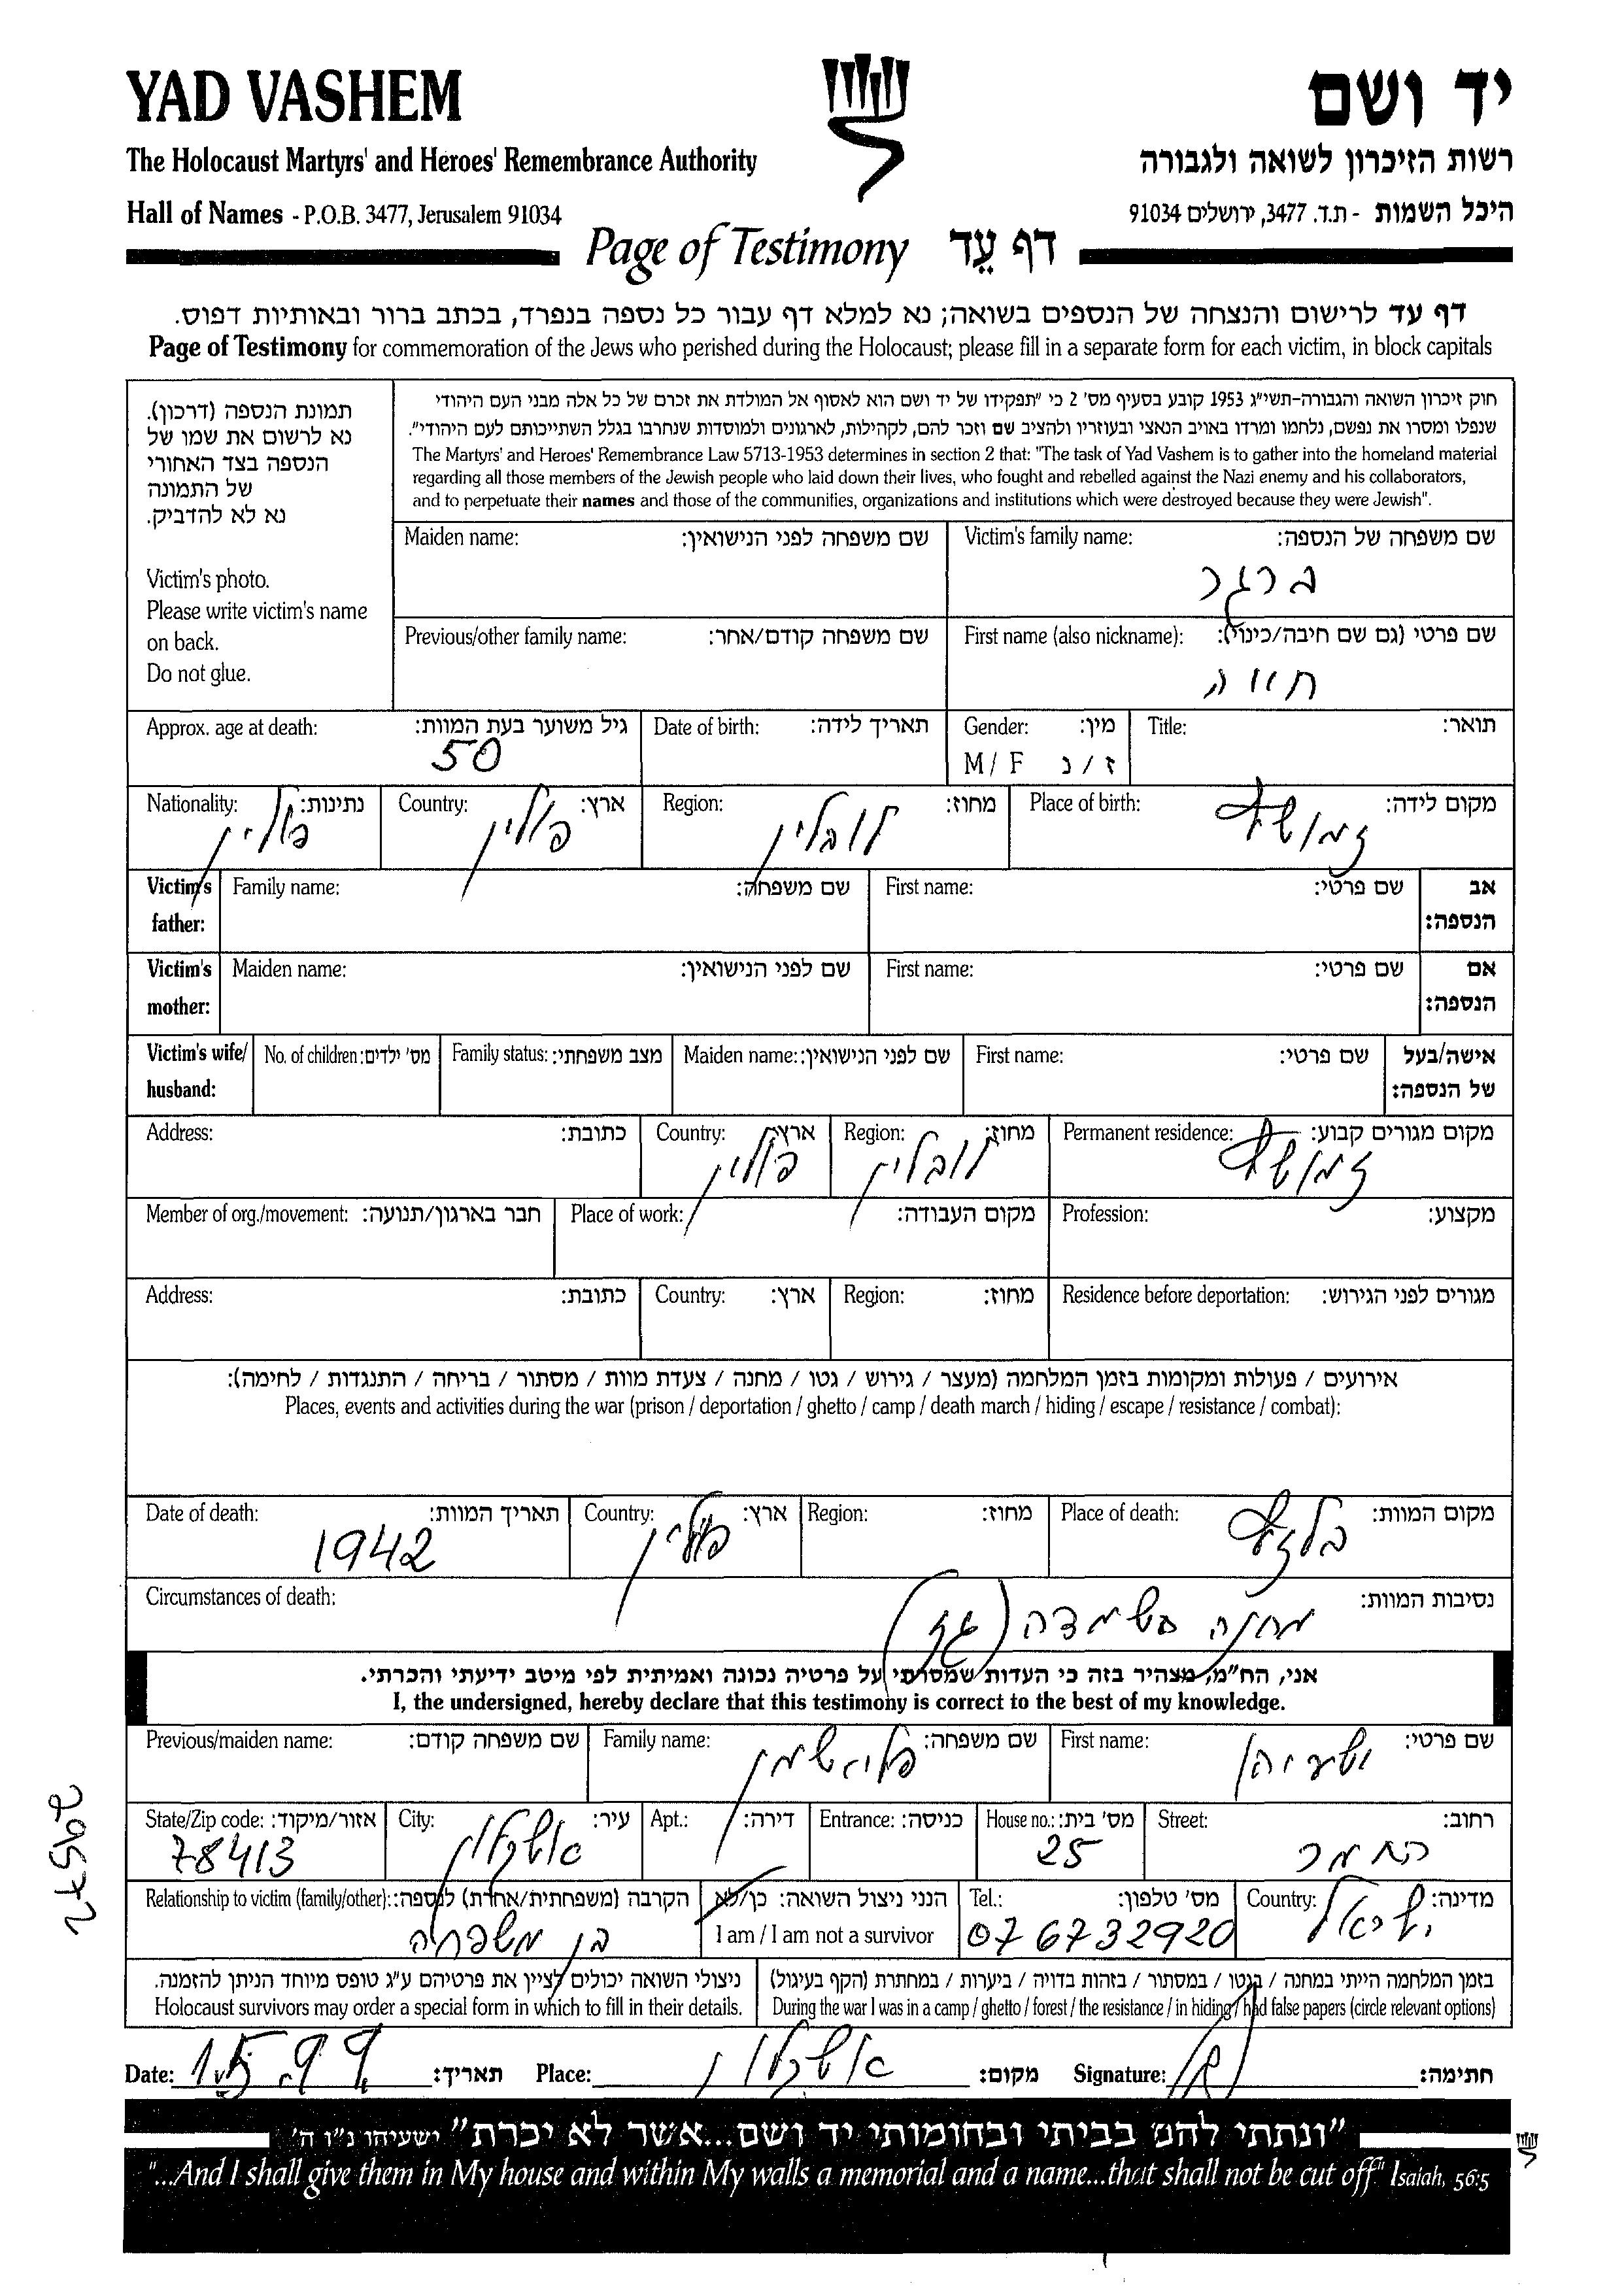 YAD VASHEM
יד ושם
The Holocaust Martyrs' and Heroes' Remembrance Authority
רשות הזיכרון לשואה ולגבורה
Hall of Names - P.O.B. 3477, Jerusalem 91034
היכל השמות - ת.ד. 3477, ירושלים 91034
Page of Testimony דף עֵד
דף עד לרישום והנצחה של הנספים בשואה; נא למלא דף עבור כל נספה בנפרד, בכתב ברור ובאותיות דפוס.
Page of Testimony for commemoration of the Jews who perished during the Holocaust; please fill in a separate form for each victim, in block capitals
תמונת הנספה (דרכון).
נא לרשום את שמו של
הנספה בצד האחורי
של התמונה
נא לא להדביק.
Victim's photo.
Please write victim's name
on back.
Do not glue.
חוק זיכרון השואה והגבורה-תשי"ג 1953 קובע בסעיף מס' 2 כי "תפקידו של יד ושם הוא לאסוף אל המולדת את זכרם של כל אלה מבני העם היהודי
שנפלו ומסרו את נפשם, נלחמו ומרדו באויב הנאצי ובעוזריו ולהציב שם וזכר להם, לקהילות, לארגונים ולמוסדות שנחרבו בגלל השתייכותם לעם היהודי".
The Martyrs' and Heroes' Remembrance Law 5713-1953 determines in section 2 that: "The task of Yad Vashem is to gather into the homeland material
regarding all those members of the Jewish people who laid down their lives, who fought and rebelled against the Nazi enemy and his collaborators,
and to perpetuate their names and those of the communities, organizations and institutions which were destroyed because they were Jewish".
Victim's family name: שם משפחה של הנספה:
ברגר
Maiden name: שם משפחה לפני הנישואין:
First name (also nickname): שם פרטי (גם שם חיבה/כינוי):
חווה
Previous/other family name: שם משפחה קודם/אחר:
Title: תואר:
Gender: מין:
M / F ז / נ
Date of birth: תאריך לידה:
Approx. age at death: גיל משוער בעת המוות:
50
Place of birth: מקום לידה:
זמושץ
Region: מחוז:
לובלין
Country: ארץ:
פולין
Nationality: נתינות:
פולין
Victim's father: Family name: שם משפחה: First name: שם פרטי: אב הנספה:
Victim's mother: Maiden name: שם לפני הנישואין: First name: שם פרטי: אם הנספה:
Victim's wife/husband: No. of children: מס' ילדים: Family status: מצב משפחתי: Maiden name: שם לפני הנישואין: First name: שם פרטי: אישה/בעל של הנספה:
Permanent residence: מקום מגורים קבוע:
זמושץ
Region: מחוז:
לובלין
Country: ארץ:
פולין
Address: כתובת:
Member of org./movement: חבר בארגון/תנועה: Place of work: מקום העבודה: Profession: מקצוע:
Address: כתובת: Country: ארץ: Region: מחוז: Residence before deportation: מגורים לפני הגירוש:
אירועים / פעולות ומקומות בזמן המלחמה (מעצר / גירוש / גטו / מחנה / צעדת מוות / מסתור / בריחה / התנגדות / לחימה):
Places, events and activities during the war (prison / deportation / ghetto / camp / death march / hiding / escape / resistance / combat):
Place of death: מקום המוות:
בלזץ
Region: מחוז:
Country: ארץ:
פולין
Date of death: תאריך המוות:
1942
Circumstances of death: נסיבות המוות:
מחנה השמדה (גז)
אני, הח"מ, מצהיר בזה כי העדות שמסרתי על פרטיה נכונה ואמיתית לפי מיטב ידיעתי והכרתי.
I, the undersigned, hereby declare that this testimony is correct to the best of my knowledge.
First name: שם פרטי:
ישעיהו
Family name: שם משפחה:
פליישמן
Previous/maiden name: שם משפחה קודם:
Street: רחוב:
התמר
House no.: מס' בית:
25
Entrance: כניסה:
Apt.: דירה:
City: עיר:
אשקלון
State/Zip code: אזור/מיקוד:
78413
Country: מדינה:
ישראל
Tel.: מס' טלפון:
07 6732920
הנני ניצול השואה: כן/לא
I am / I am not a survivor
Relationship to victim (family/other): הקרבה (משפחתית/אחרת) לנספה:
בן משפחה
בזמן המלחמה הייתי במחנה / בגטו / במסתור / בזהות בדויה / ביערות / במחתרת (הקף בעיגול)
During the war I was in a camp / ghetto / forest / the resistance / in hiding / had false papers (circle relevant options)
ניצולי השואה יכולים לציין את פרטיהם ע"ג טופס מיוחד הניתן להזמנה.
Holocaust survivors may order a special form in which to fill in their details.
Date: 1.5.99 תאריך: Place: אשקלון מקום: Signature: חתימה:
"ונתתי להם בביתי ובחומותי יד ושם...אשר לא יכרת" ישעיהו נ"ו ה'
"...And I shall give them in My house and within My walls a memorial and a name...that shall not be cut off." Isaiah, 56:5